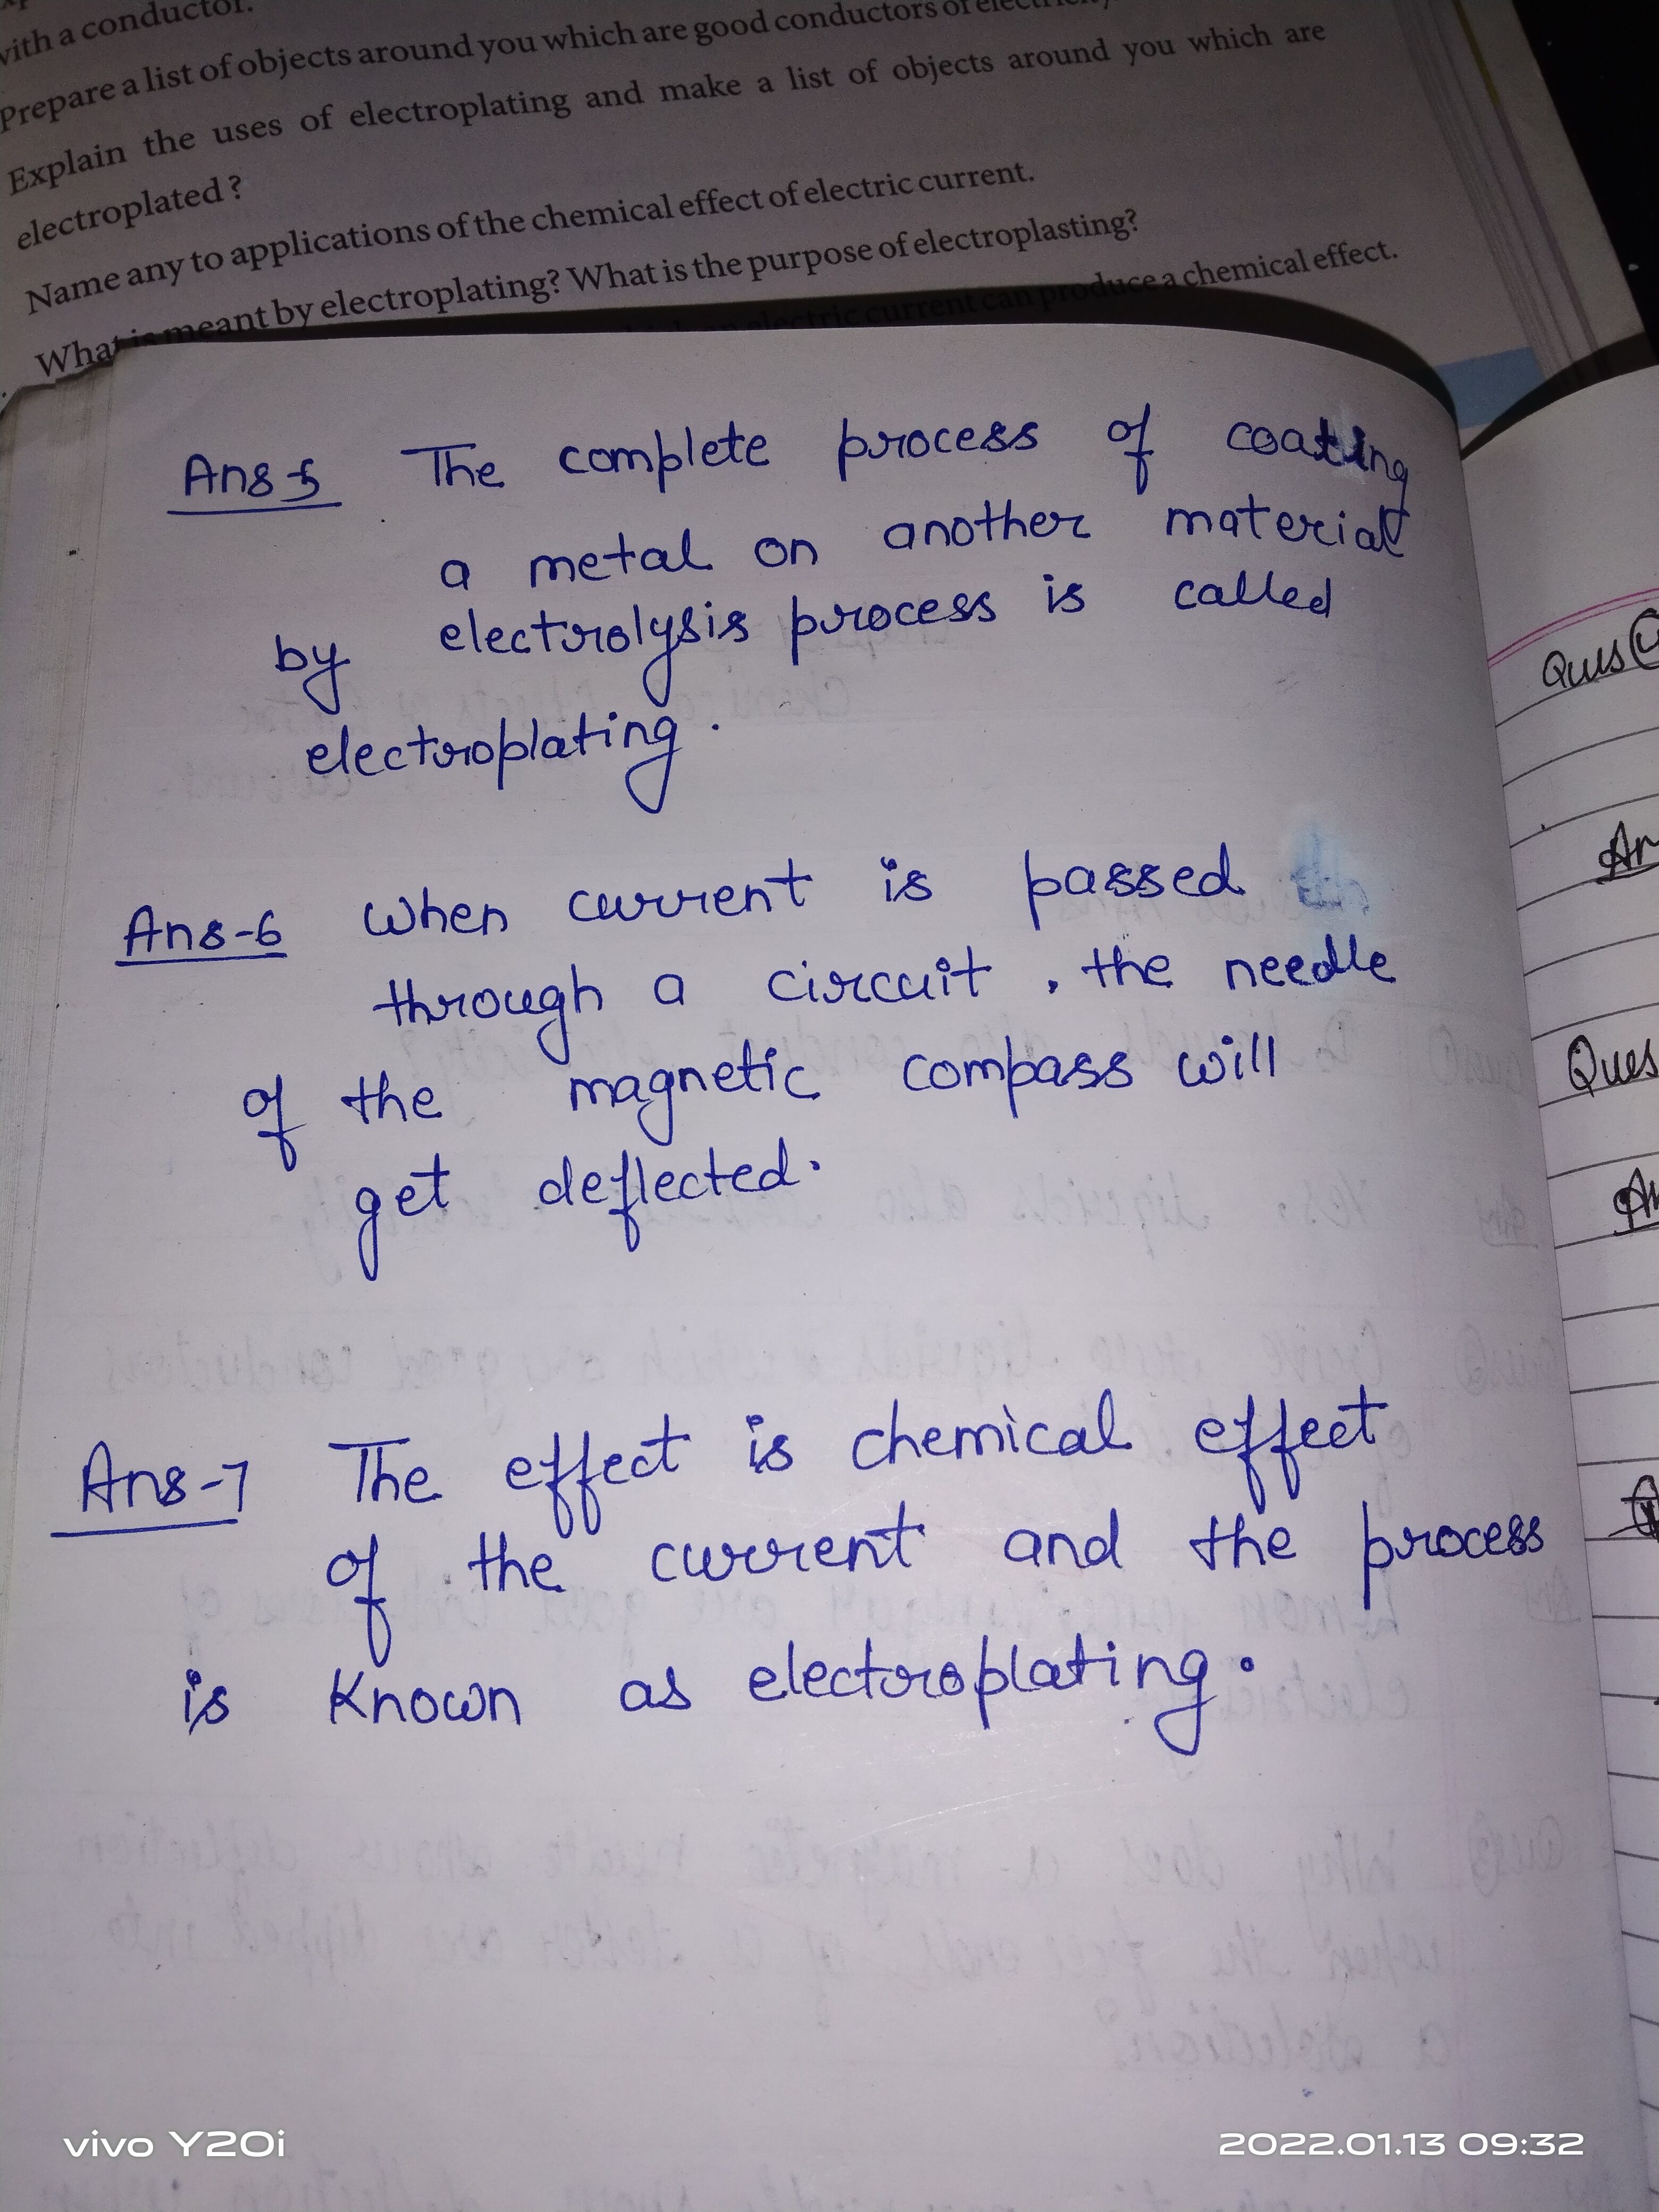 with a conductor.
Prepare a list of objects around you which are good conductors of electricity.
Explain the uses of electroplating and make a list of objects around you which are
electroplated?
Name any to applications of the chemical effect of electric current.
What is meant by electroplating? What is the purpose of electroplasting?
an electric current can produce a chemical effect.
Ans 5 The complete process of coating
a metal on another material
by electrolysis process is called
electroplating.
Ans-6 When current is passed
through a circuit, the needle
of the magnetic compass will
get deflected.
Ans-7 The effect is chemical effect
of the current and the process
is Known as electroplating.
Ques
Ques
vivo Y20i
2022.01.13 09:32